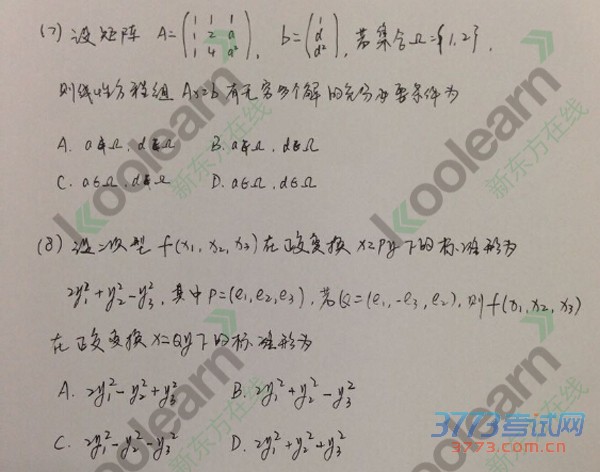 (7) 设矩阵 A=(1 1 1; 1 2 a; 1 4 a²), b=(1; d; d²), 若集合Ω={1,2},
则线性方程组 Ax=b 有无穷多个解的充分必要条件为
A. a∉Ω, d∉Ω B. a∉Ω, d∈Ω
C. a∈Ω, d∉Ω D. a∈Ω, d∈Ω
(8) 设二次型 f(x₁, x₂, x₃) 在正交变换 x=Py 下的标准形为
2y₁²+y₂²-y₃², 其中 P=(e₁,e₂,e₃), 若Q=(e₁,-e₃,e₂), 则 f(x₁,x₂,x₃)
在正交变换 x=Qy 下的标准形为
A. 2y₁²-y₂²+y₃² B. 2y₁²+y₂²-y₃²
C. 2y₁²-y₂²-y₃² D. 2y₁²+y₂²+y₃²
koolearn
新东方在线
koolearn
新东方在线
koolearn
新东方在线
3773考试网
3773.com.cn